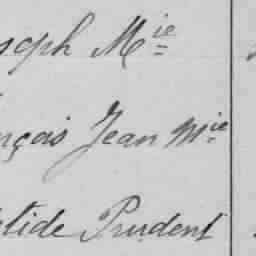 oseph M^ie
nçois Jean M^ie
tilde Prudent